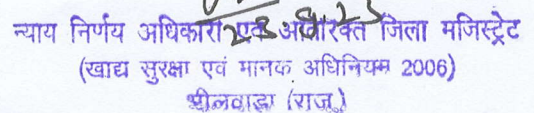 23.8.23
न्याय निर्णय अधिकारी एवं अतिरिक्त जिला मजिस्ट्रेट
(खाद्य सुरक्षा एवं मानक अधिनियम 2006)
भीलवाडा (राज.)